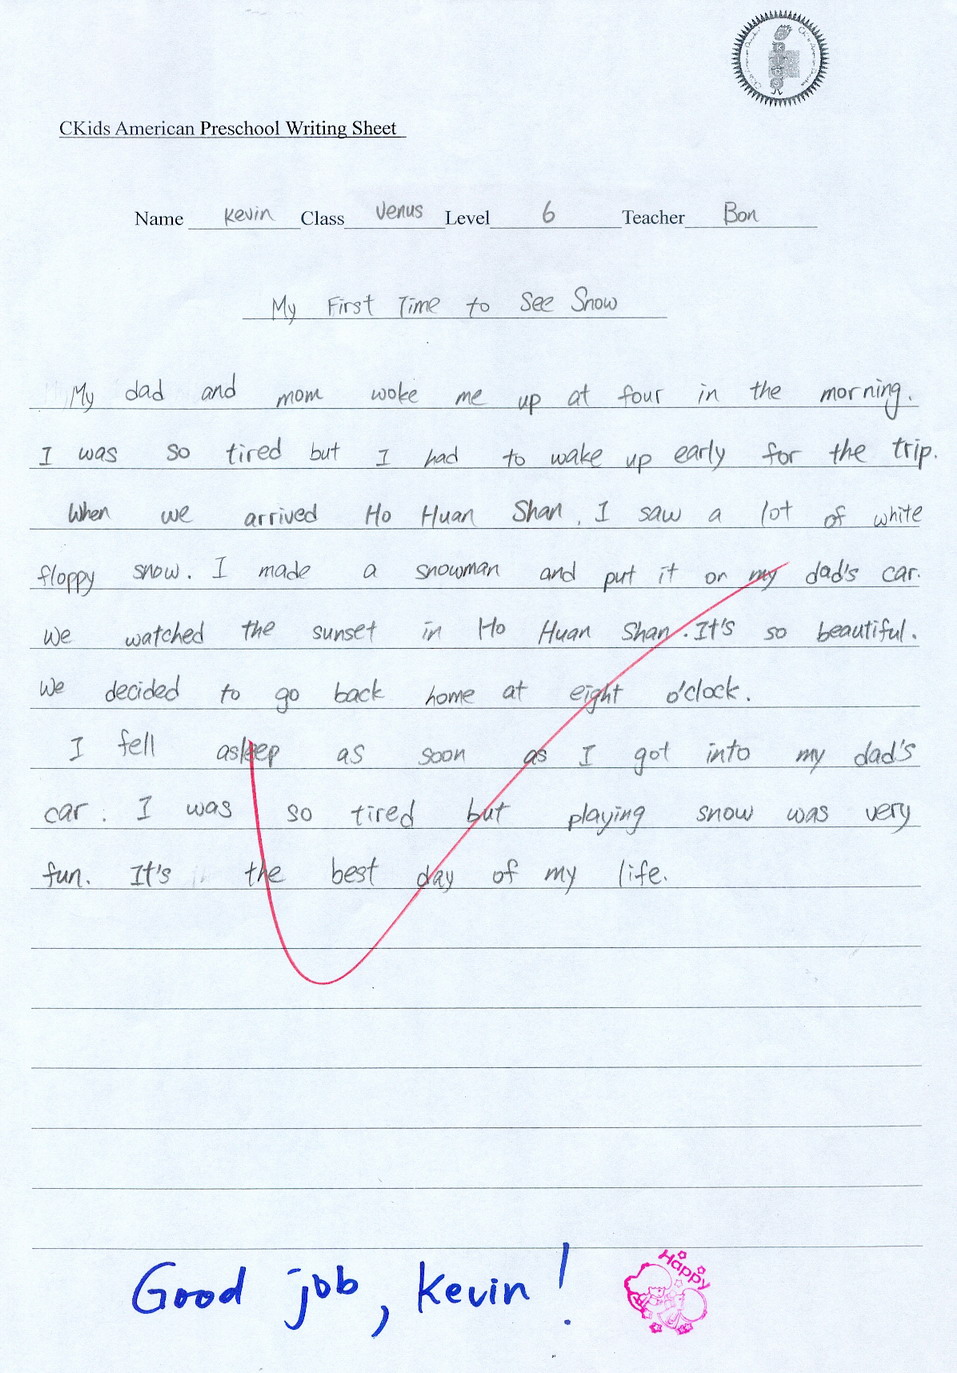 CKids American Preschool Writing Sheet
Name Kevin Class Venus Level 6 Teacher Bon
My First Time to See Snow
My dad and mom woke me up at four in the morning.
I was so tired but I had to wake up early for the trip.
When we arrived Ho Huan Shan, I saw a lot of white
floppy snow. I made a snowman and put it on my dad's car.
We watched the sunset in Ho Huan Shan. It's so beautiful.
We decided to go back home at eight o'clock.
I fell asleep as soon as I got into my dad's
car. I was so tired but playing snow was very
fun. It's the best day of my life.
Good job, Kevin!
Happy